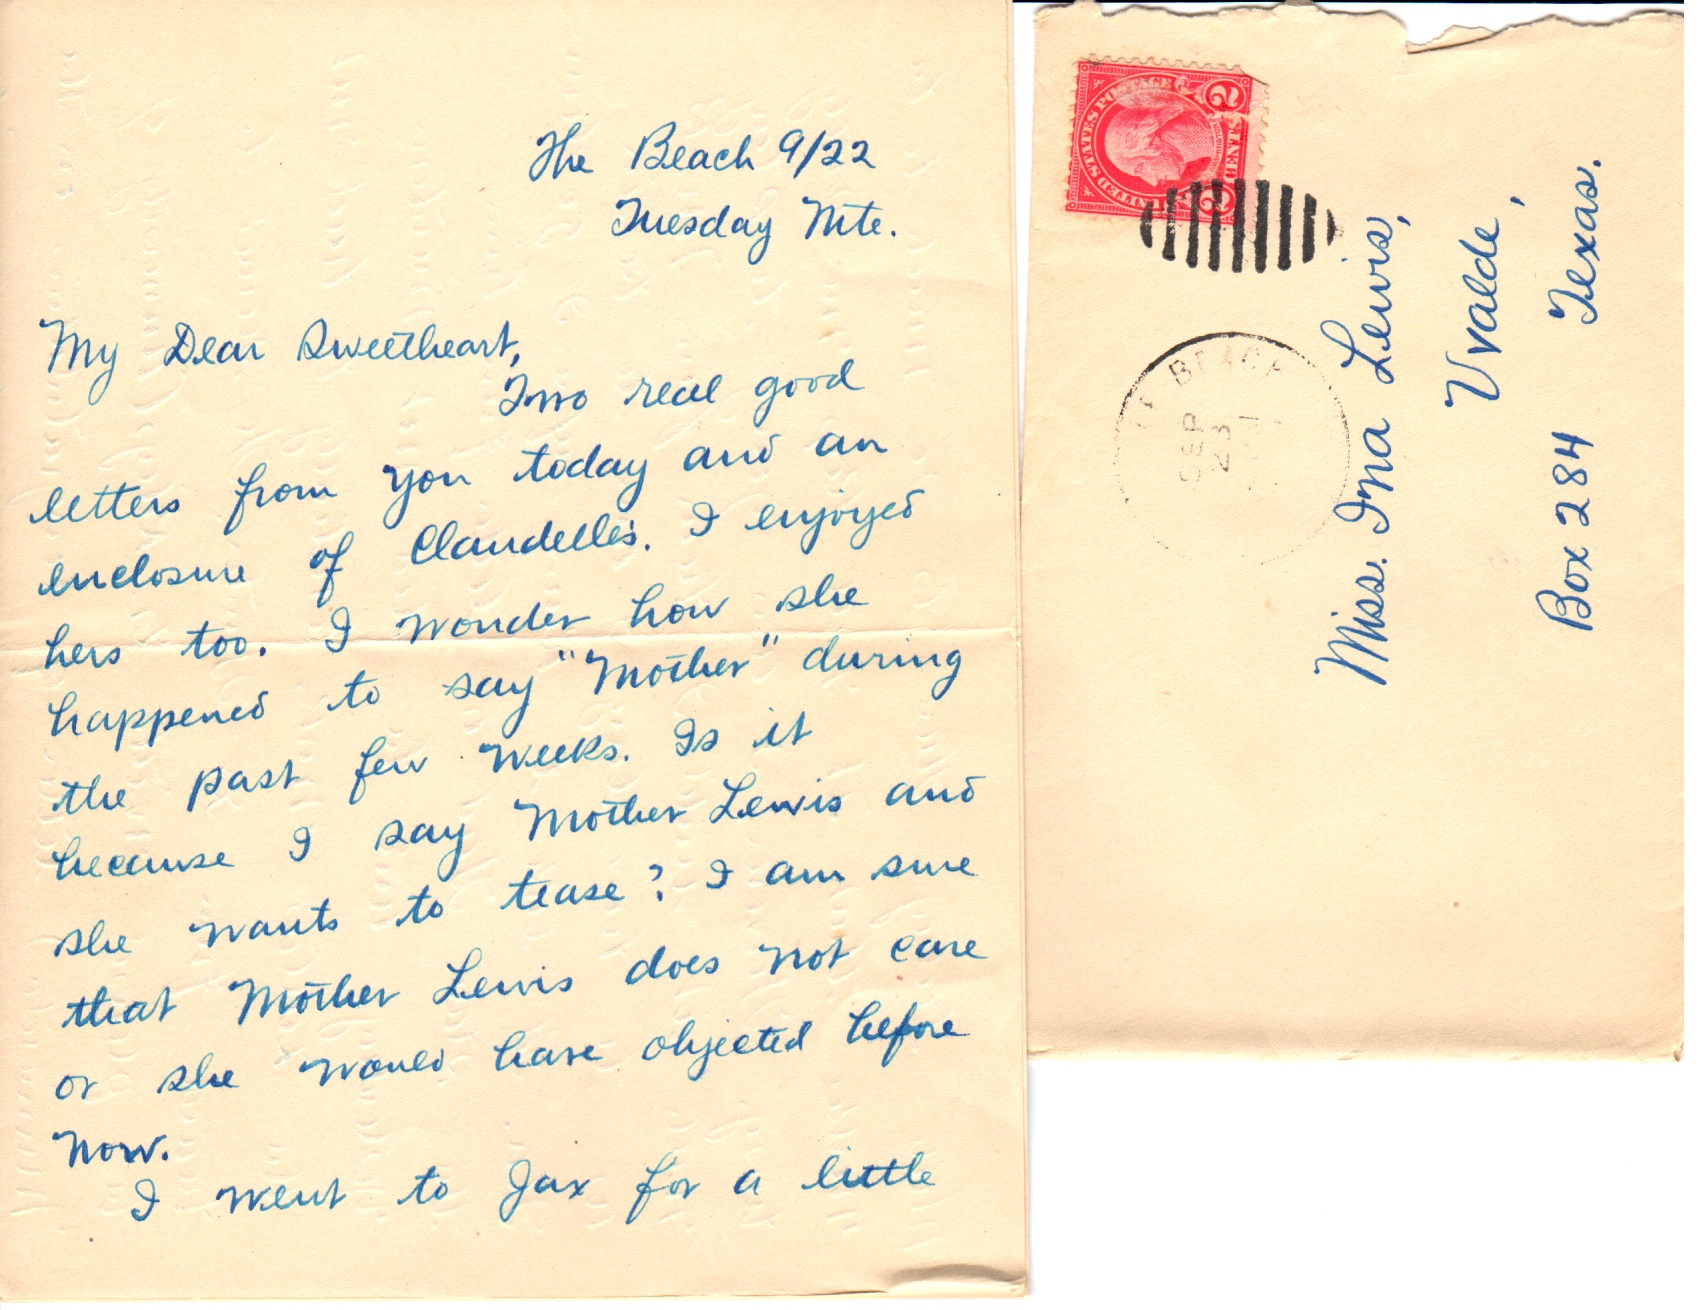 The Beach 9/22
Tuesday Nite.
My Dear Sweetheart,
Two real good
letters from you today and an
enclosure of Claudelle's. I enjoyed
hers too. I wonder how she
happened to say "Mother" during
the past few weeks. Is it
because I say Mother Lewis and
she wants to tease? I am sure
that Mother Lewis does not care
or she would have objected before
now.
I went to Jax for a little
UNITED STATES POSTAGE
2 CENTS 2
BEACH
SEP
23
Miss. Ina Lewis,
Uvalde,
Box 284 Texas.